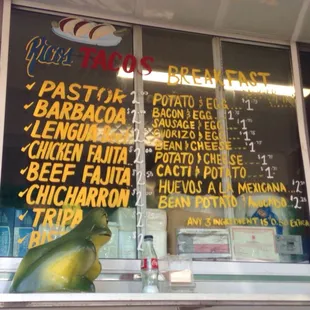 TACOS
BREAKFAST
PASTOR 2
BARBACOA 2
LENGUA 2
CHICKEN FAJITA 2
BEEF FAJITA 2
CHICHARRON 2
TRIPA 2
POTATO & EGG 1
BACON & EGG 1
SAUSAGE & EGG 1
CHORIZO & EGG 1
BEAN & CHEESE 1
POTATO & CHEESE 1
CACTI & POTATO 1
HUEVOS A LA MEXICANA 2
BEAN POTATO & AVOCADO 2
ANY 3 INGREDIENT IS EXTRA